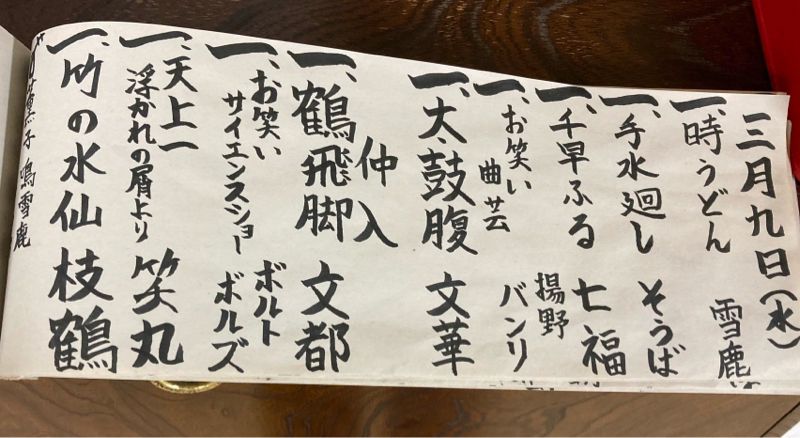 三月九日(水)
一、時うどん 雪鹿
一、手水廻し そうば
一、千早ふる 七福
一、お笑い
曲芸 揚野
バンリ
一、太鼓腹 文華
仲入
一、鶴飛脚 文都
一、お笑い
サイエンスショー ボルト
ボルズ
一、天上一
浮かれの屑より 笑丸
一、竹の水仙 枝鶴
鳴 雪鹿